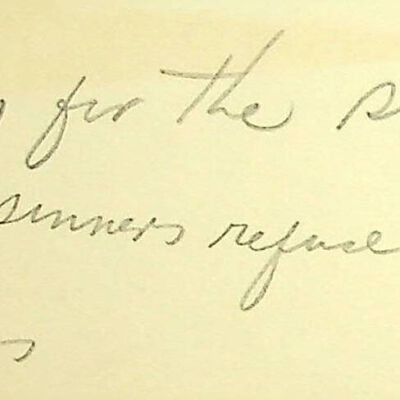 for the s
sinners refuse